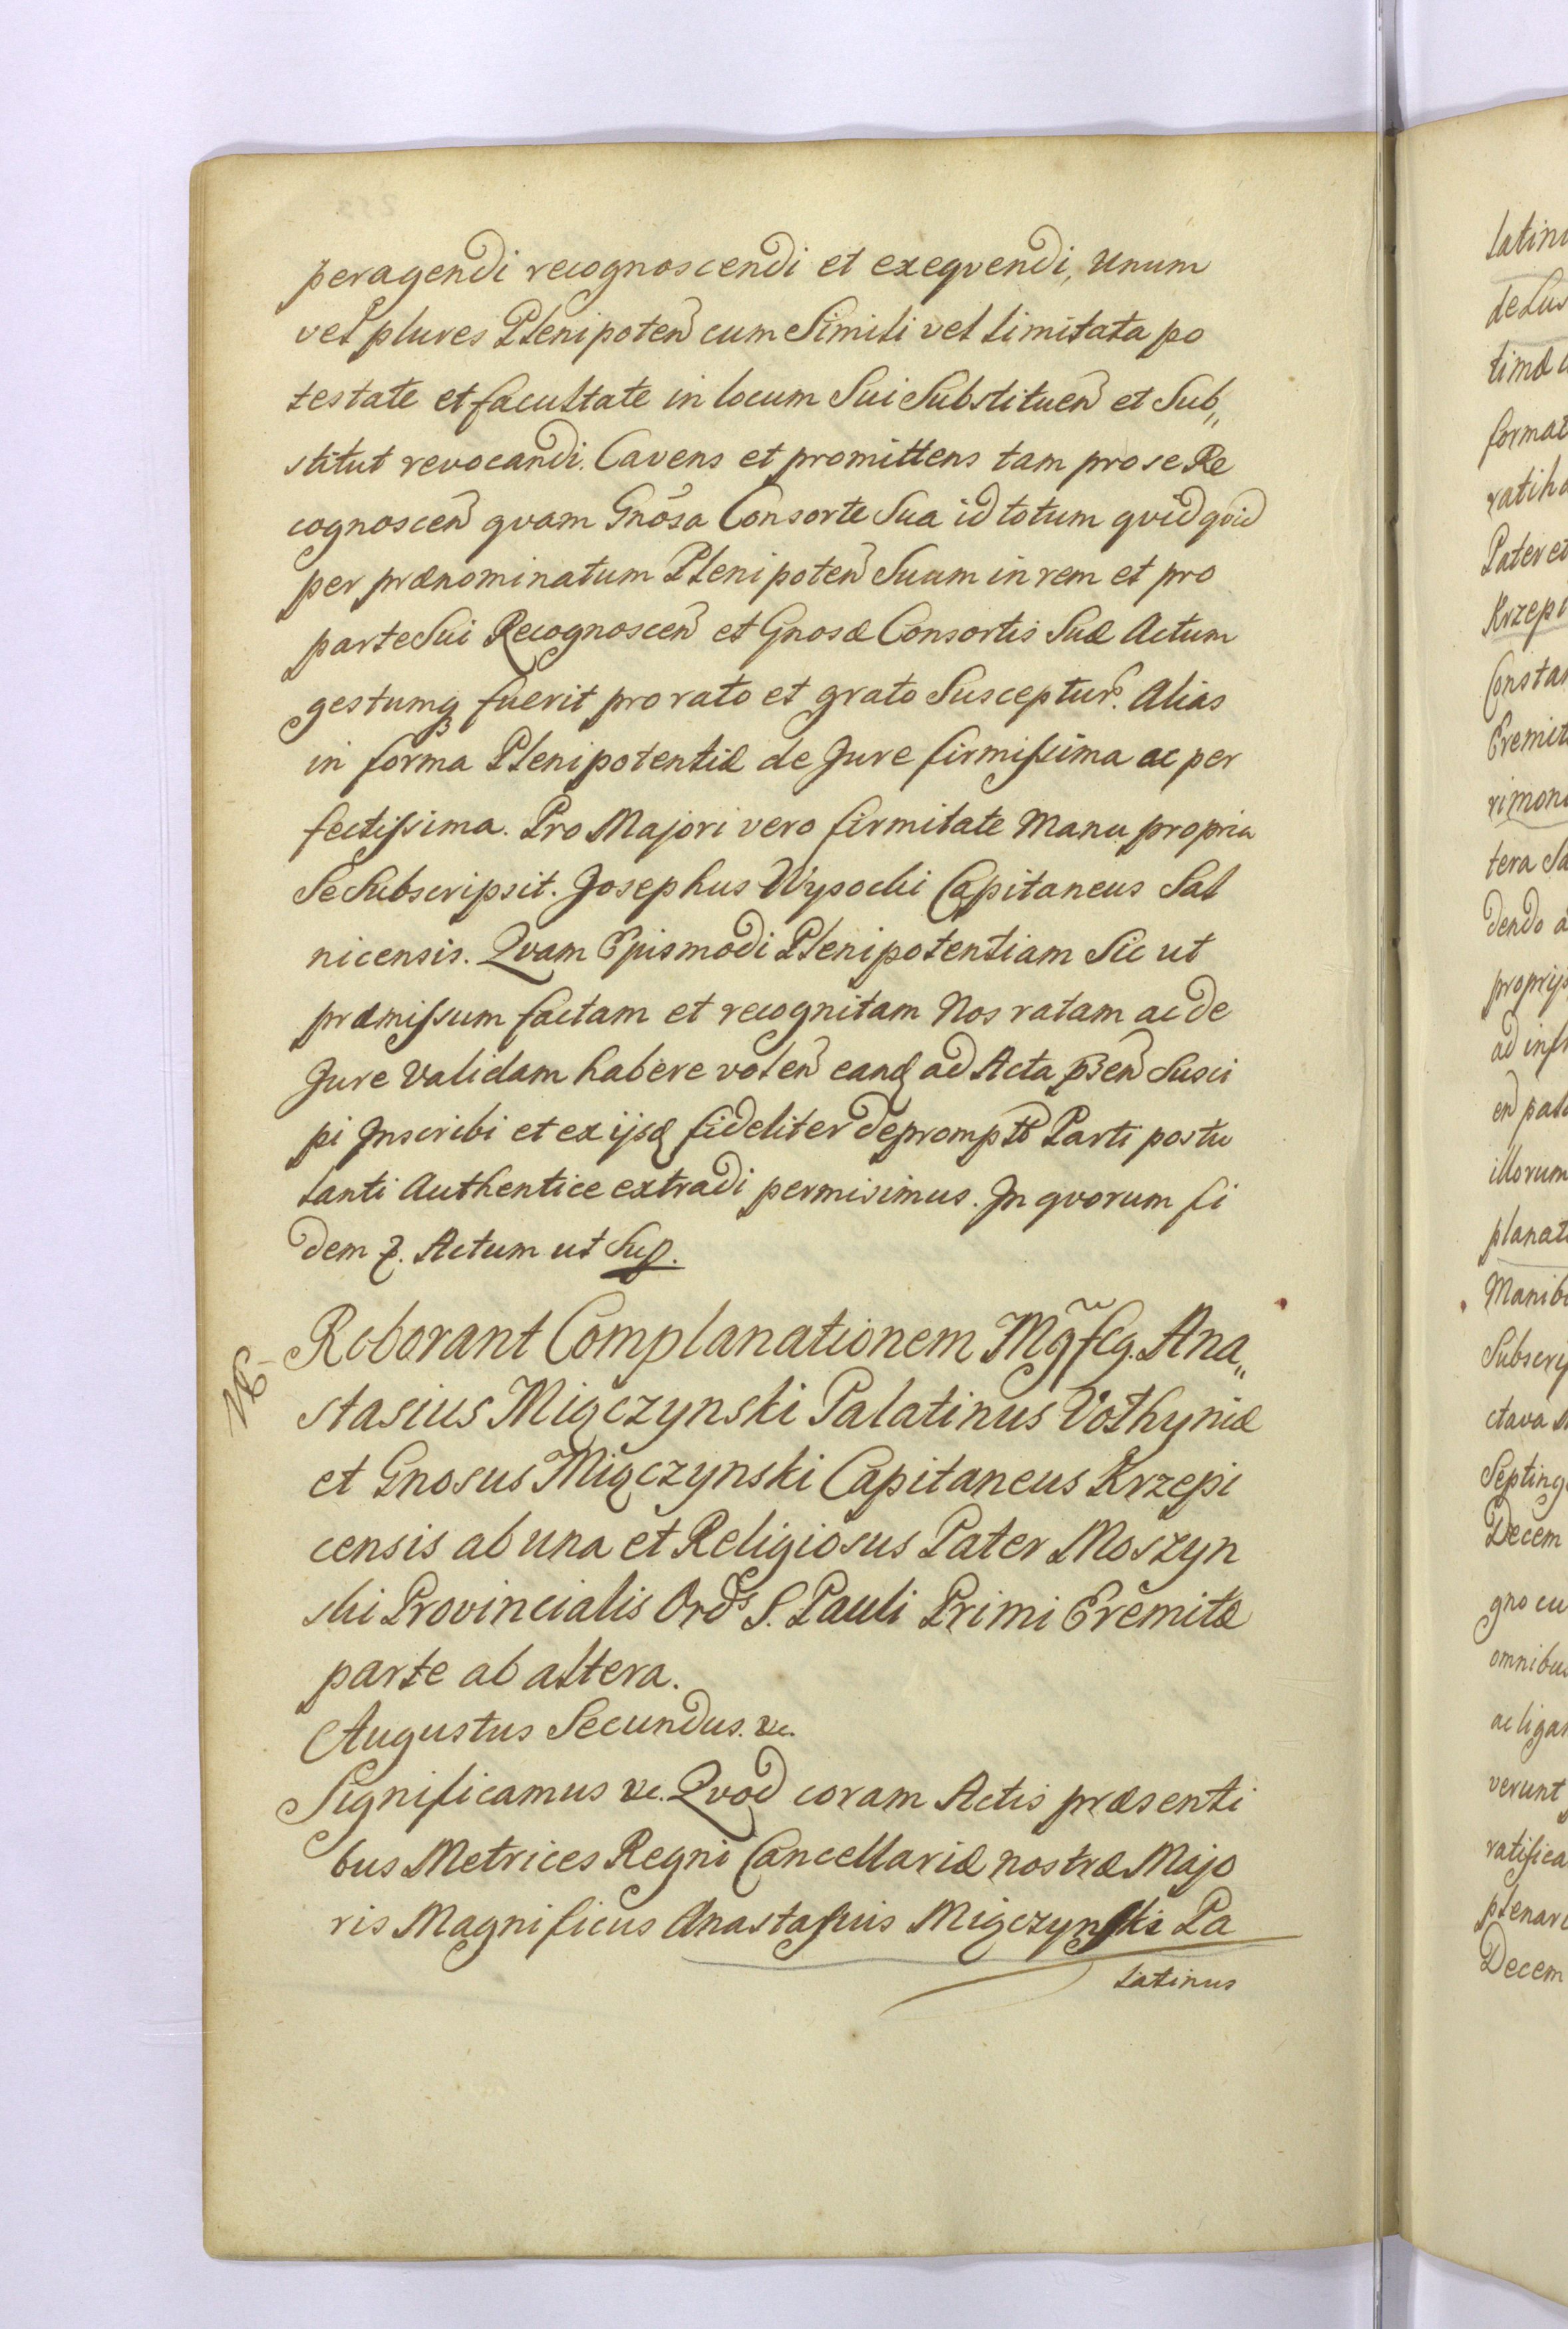 peragendi recognoscendi et exeqvendi, Unum
vel plures Plenipoteñ cum Simili vel limitata po
testate et facultate in locum Sui Substitueñ et Sub„
stitut revocandi. Cavens et promittens tam pro se Re
cognosceñ qvam Gnõsa Consorte Sua id totum qvidqvid
per prænominatum Plenipoteñ Suum in rem et pro
parte Sui Recognosceñ et Gnosæ Consortis Suæ Actum
gestumq fuerit pro rato et grato Suscepturs. Alias
in forma Plenipotentiæ de Jure firmissima ac per
fectissima. Pro Majori vero firmitate Manu propria
Se Subscripsit. Josephus Wysocki Capitaneus Sal
nicensis. Qvam Ejusmodi Plenipotentiam Sic ut
præmissum factam et recognitam Nos ratam ac de
Jure Validam habere voleñ eandq ad Acta pñseñ Susci
pi Inscribi et ex ijsq fideliter deprompt Parti postu
lanti Authentice extradi permisimus. In qvorum fi
dem &. Actum ut Sup.
Roborant Complanationem Mgfcg. Ana„
stasius Miączynski Palatinus Volhyniæ
et Gnosus Miączynski Capitaneus Krzepi
censis ab una et Religiosus Pater Moszyn
ski Provincialis Ords S. Pauli Primi Eremitæ
parte ab altera.
Augustus Secundus. &c.
Significamus &c. Qvod coram Actis præsenti
bus Metrices Regni Cancellariæ nostræ Majo
ris Magnificus Anastasius Miączynski Pa
latinus
latin
de Lus
timæ
format
ratiha
Pater et
Krzepi
Constan
Eremit
rimoni
tera Sa
dendo a
proprijs
ad inf
pala
illorum
planat
Manib
Subscrip
ctava
Septing
Decem
gno cu
omnibus
ac ligan
verunt
ratifica
plenar
Decem